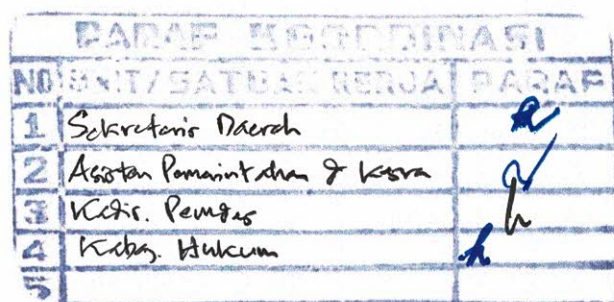 PARAF KOORDINASI
NO UNIT/SATUAN KERJA PARAF
1 Sekretaris Daerah
2 Asisten Pemerintahan & Kesra
3 Kadis. Pemdes
4 Kabag. Hukum
5